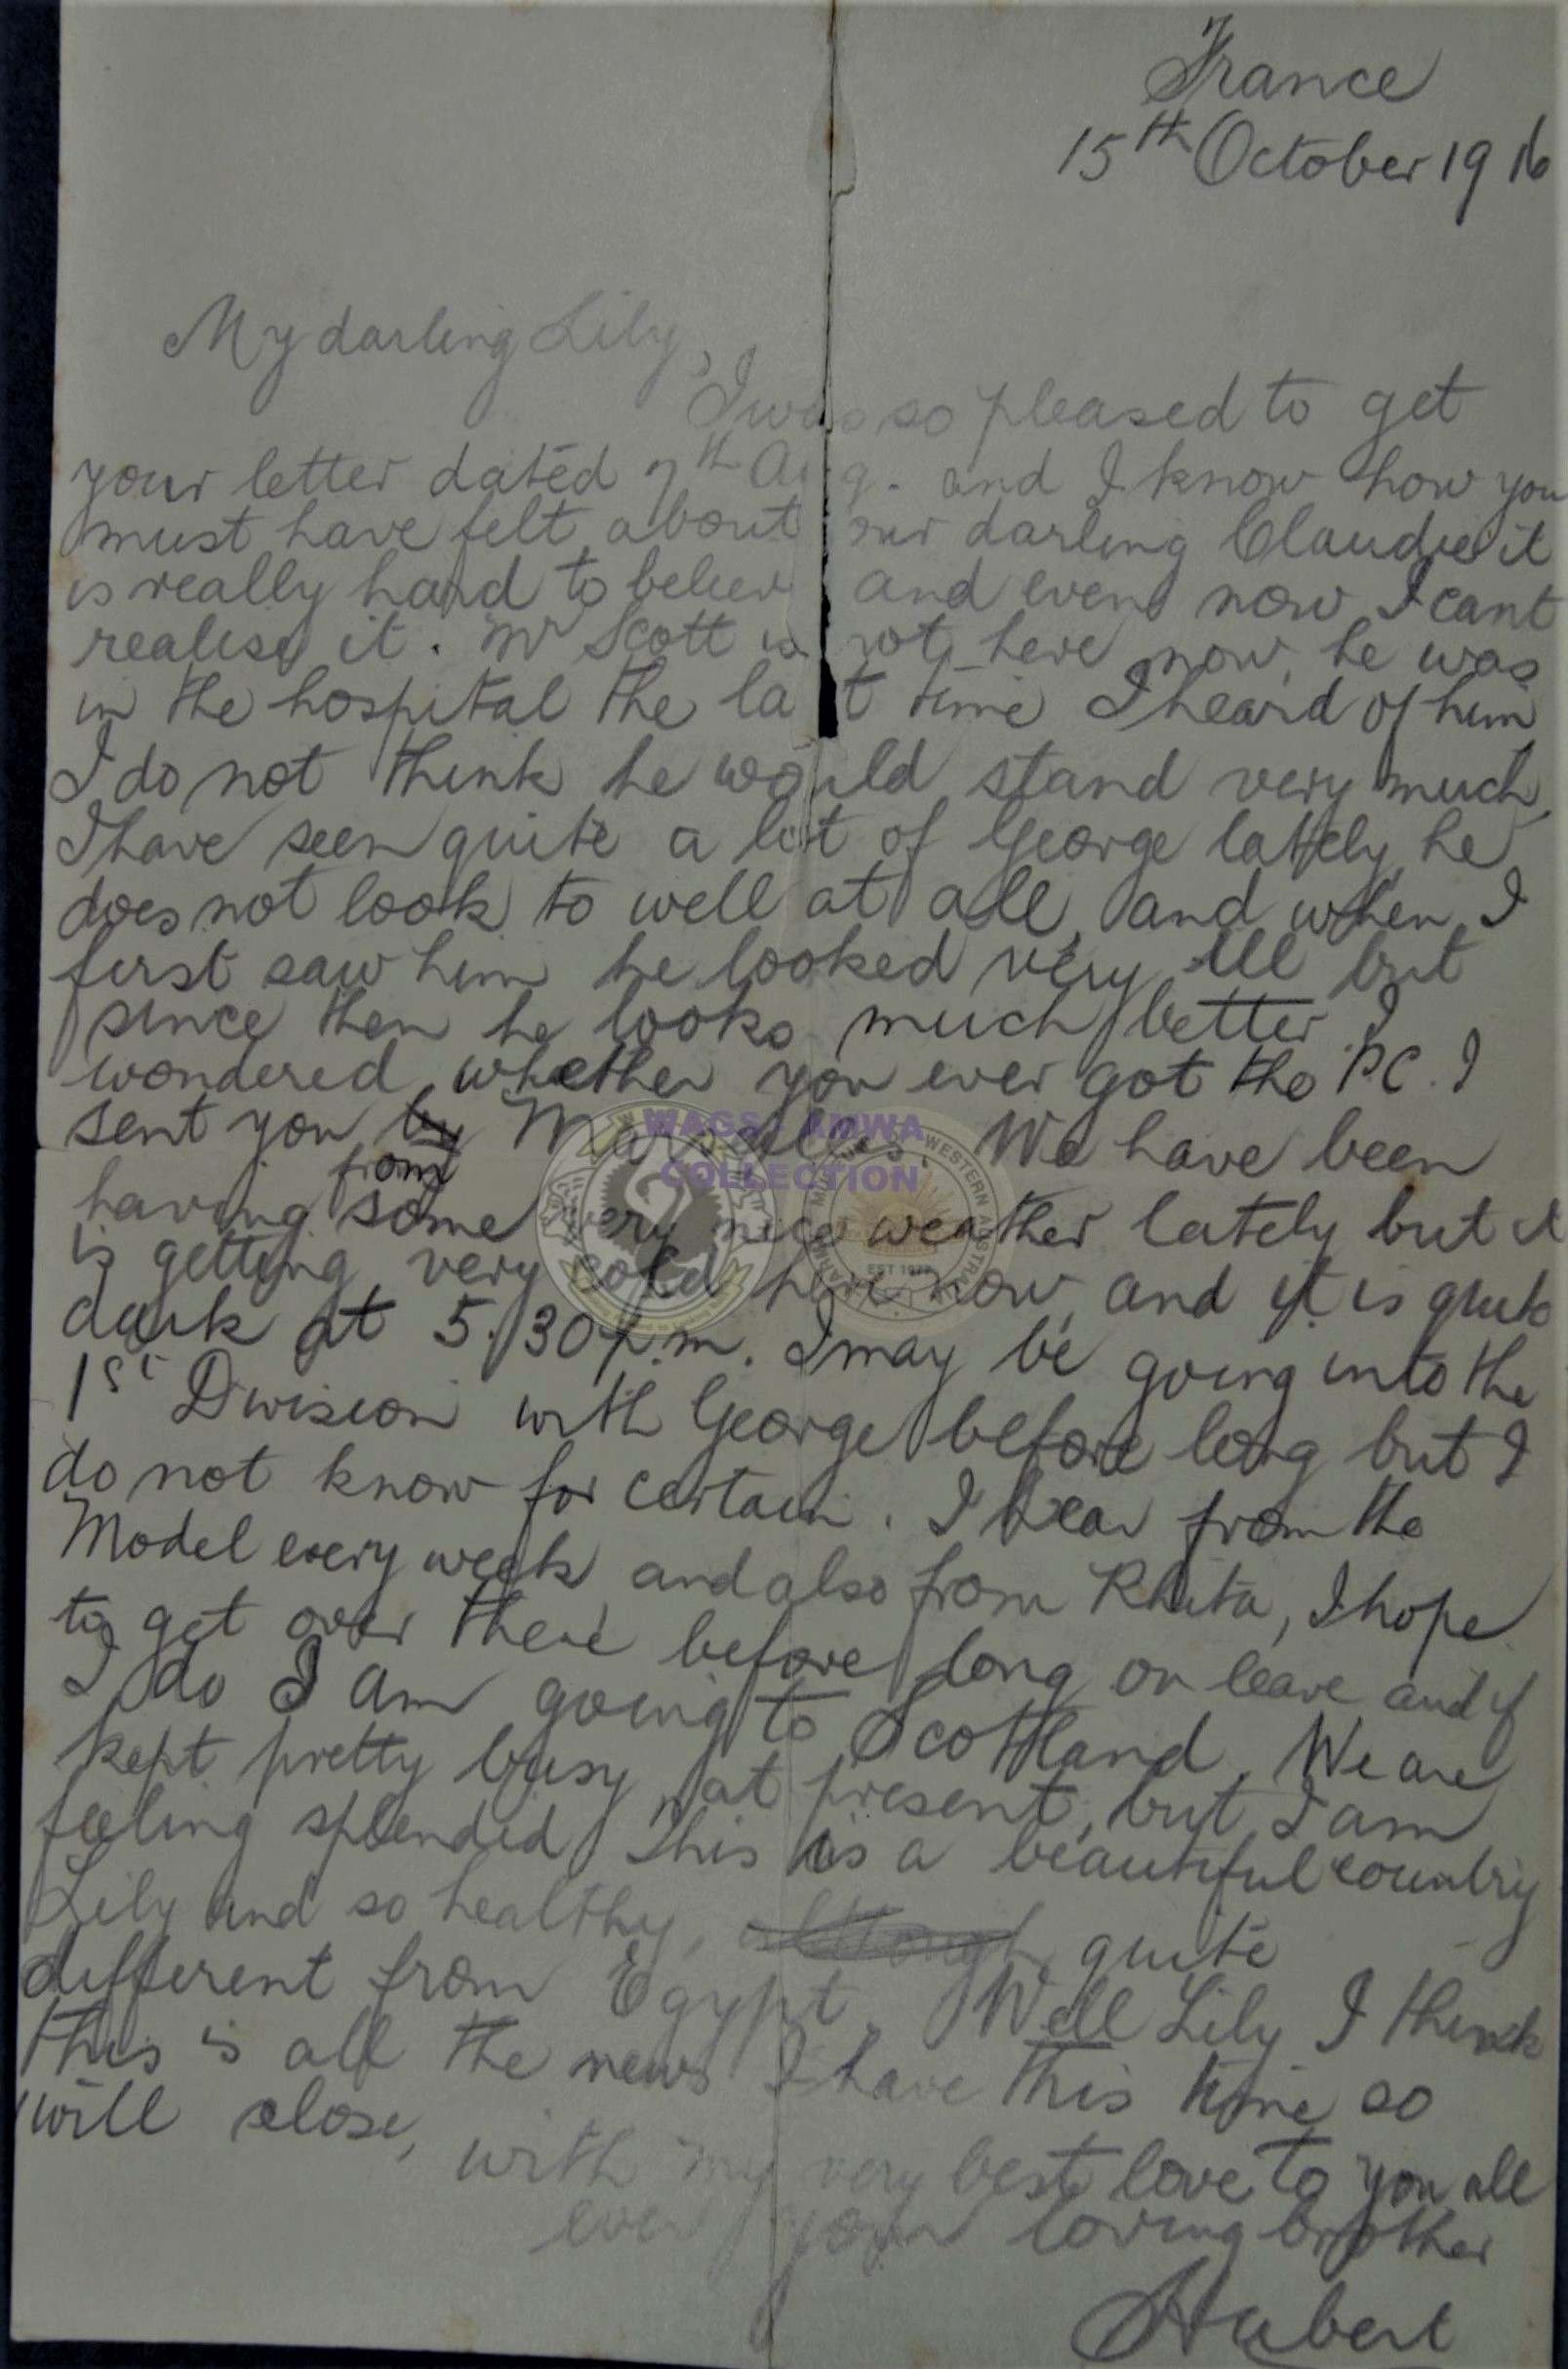 France
15th October 1916
My darling Lily,
I was so pleased to get
your letter dated 7th Aug. and I know how you
must have felt about our darling Claudie it
is really hard to believ and even now I cant
realise it. Mr Scott is not here now, he was
in the hospital the last time I heard of him
I do not think he would stand very much,
I have seen quite a lot of George lately, he
does not look to well at all, and when I
first saw him he looked very ill but
since then he looks much better. I
wondered whether you ever got the P.C. I
sent you by from Marseilles. We have been
having some very nice weather lately but it
is getting very cold here now, and it is quite
dark at 5.30 p.m. I may be going into the
1st Division with George before long but I
do not know for certain. I hear from the
Model every week and also from Rhita, I hope
to get over there before long on leave and if
I do I am going to Scotland. We are
kept pretty busy at present, but I am
feeling splendid This is a beautiful country
Lily and so healthy, although quite
different from Egypt. Well Lily I think
this is all the news I have this time so
will close,
with my very best love to you all
ever your loving brother
Hubert
WAGS - AMWA
COLLECTION
WESTERN AUSTRALIA
EST 1977